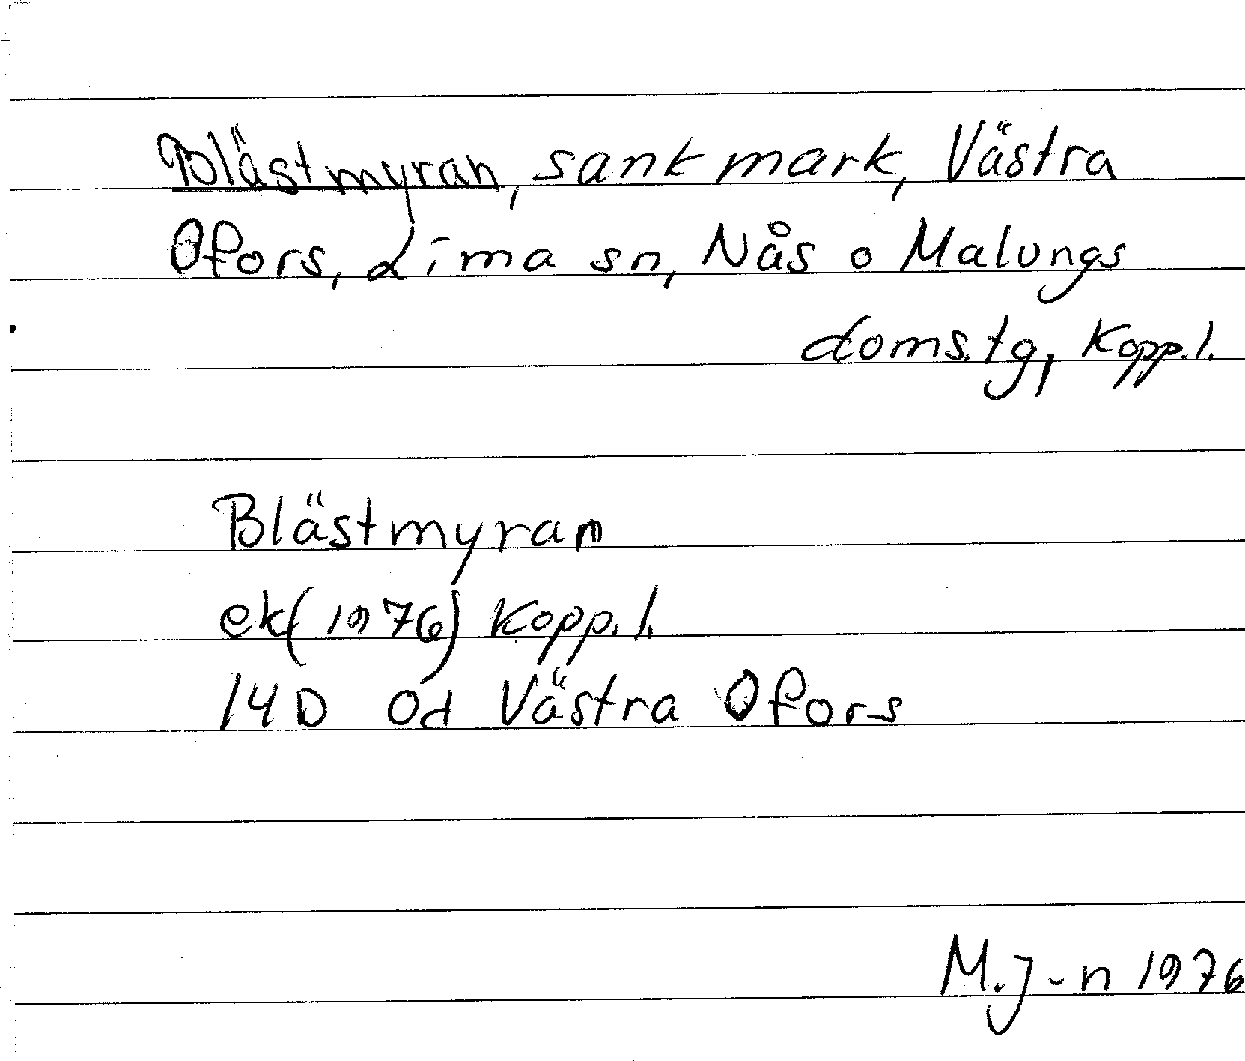 Blästmyran, sank mark, Västra
Ofors, Lima sn, Nås o Malungs
doms.tg, Kopp.l.
Blästmyran
ek(1976) Kopp.l.
14D Od Västra Ofors
M.J-n 1976